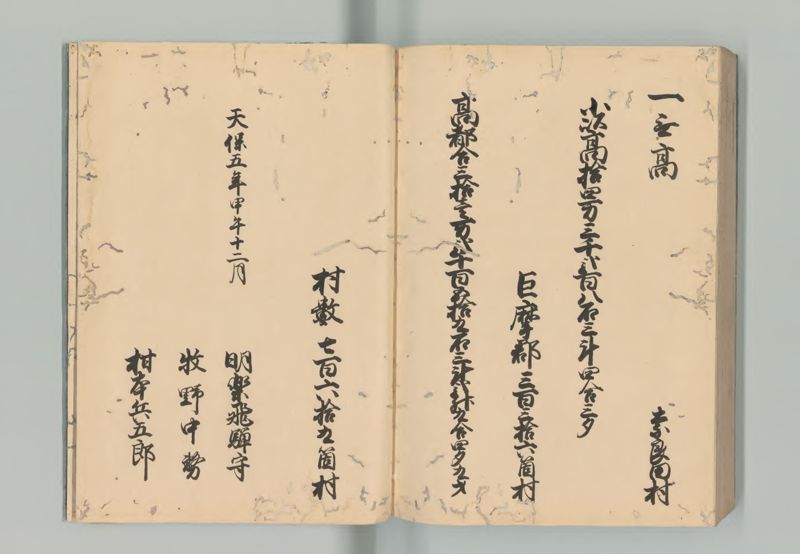 一無高
奈良田村
小以高拾四万三千弐百八石三斗四合三夕
巨摩郡三百三拾六箇村
高都合三拾壱万弐千百五拾九石三斗弐升九合四夕九才
村数七百六拾九箇村
天保五年甲午十二月
明楽飛騨守
牧野中務
柑本兵五郎